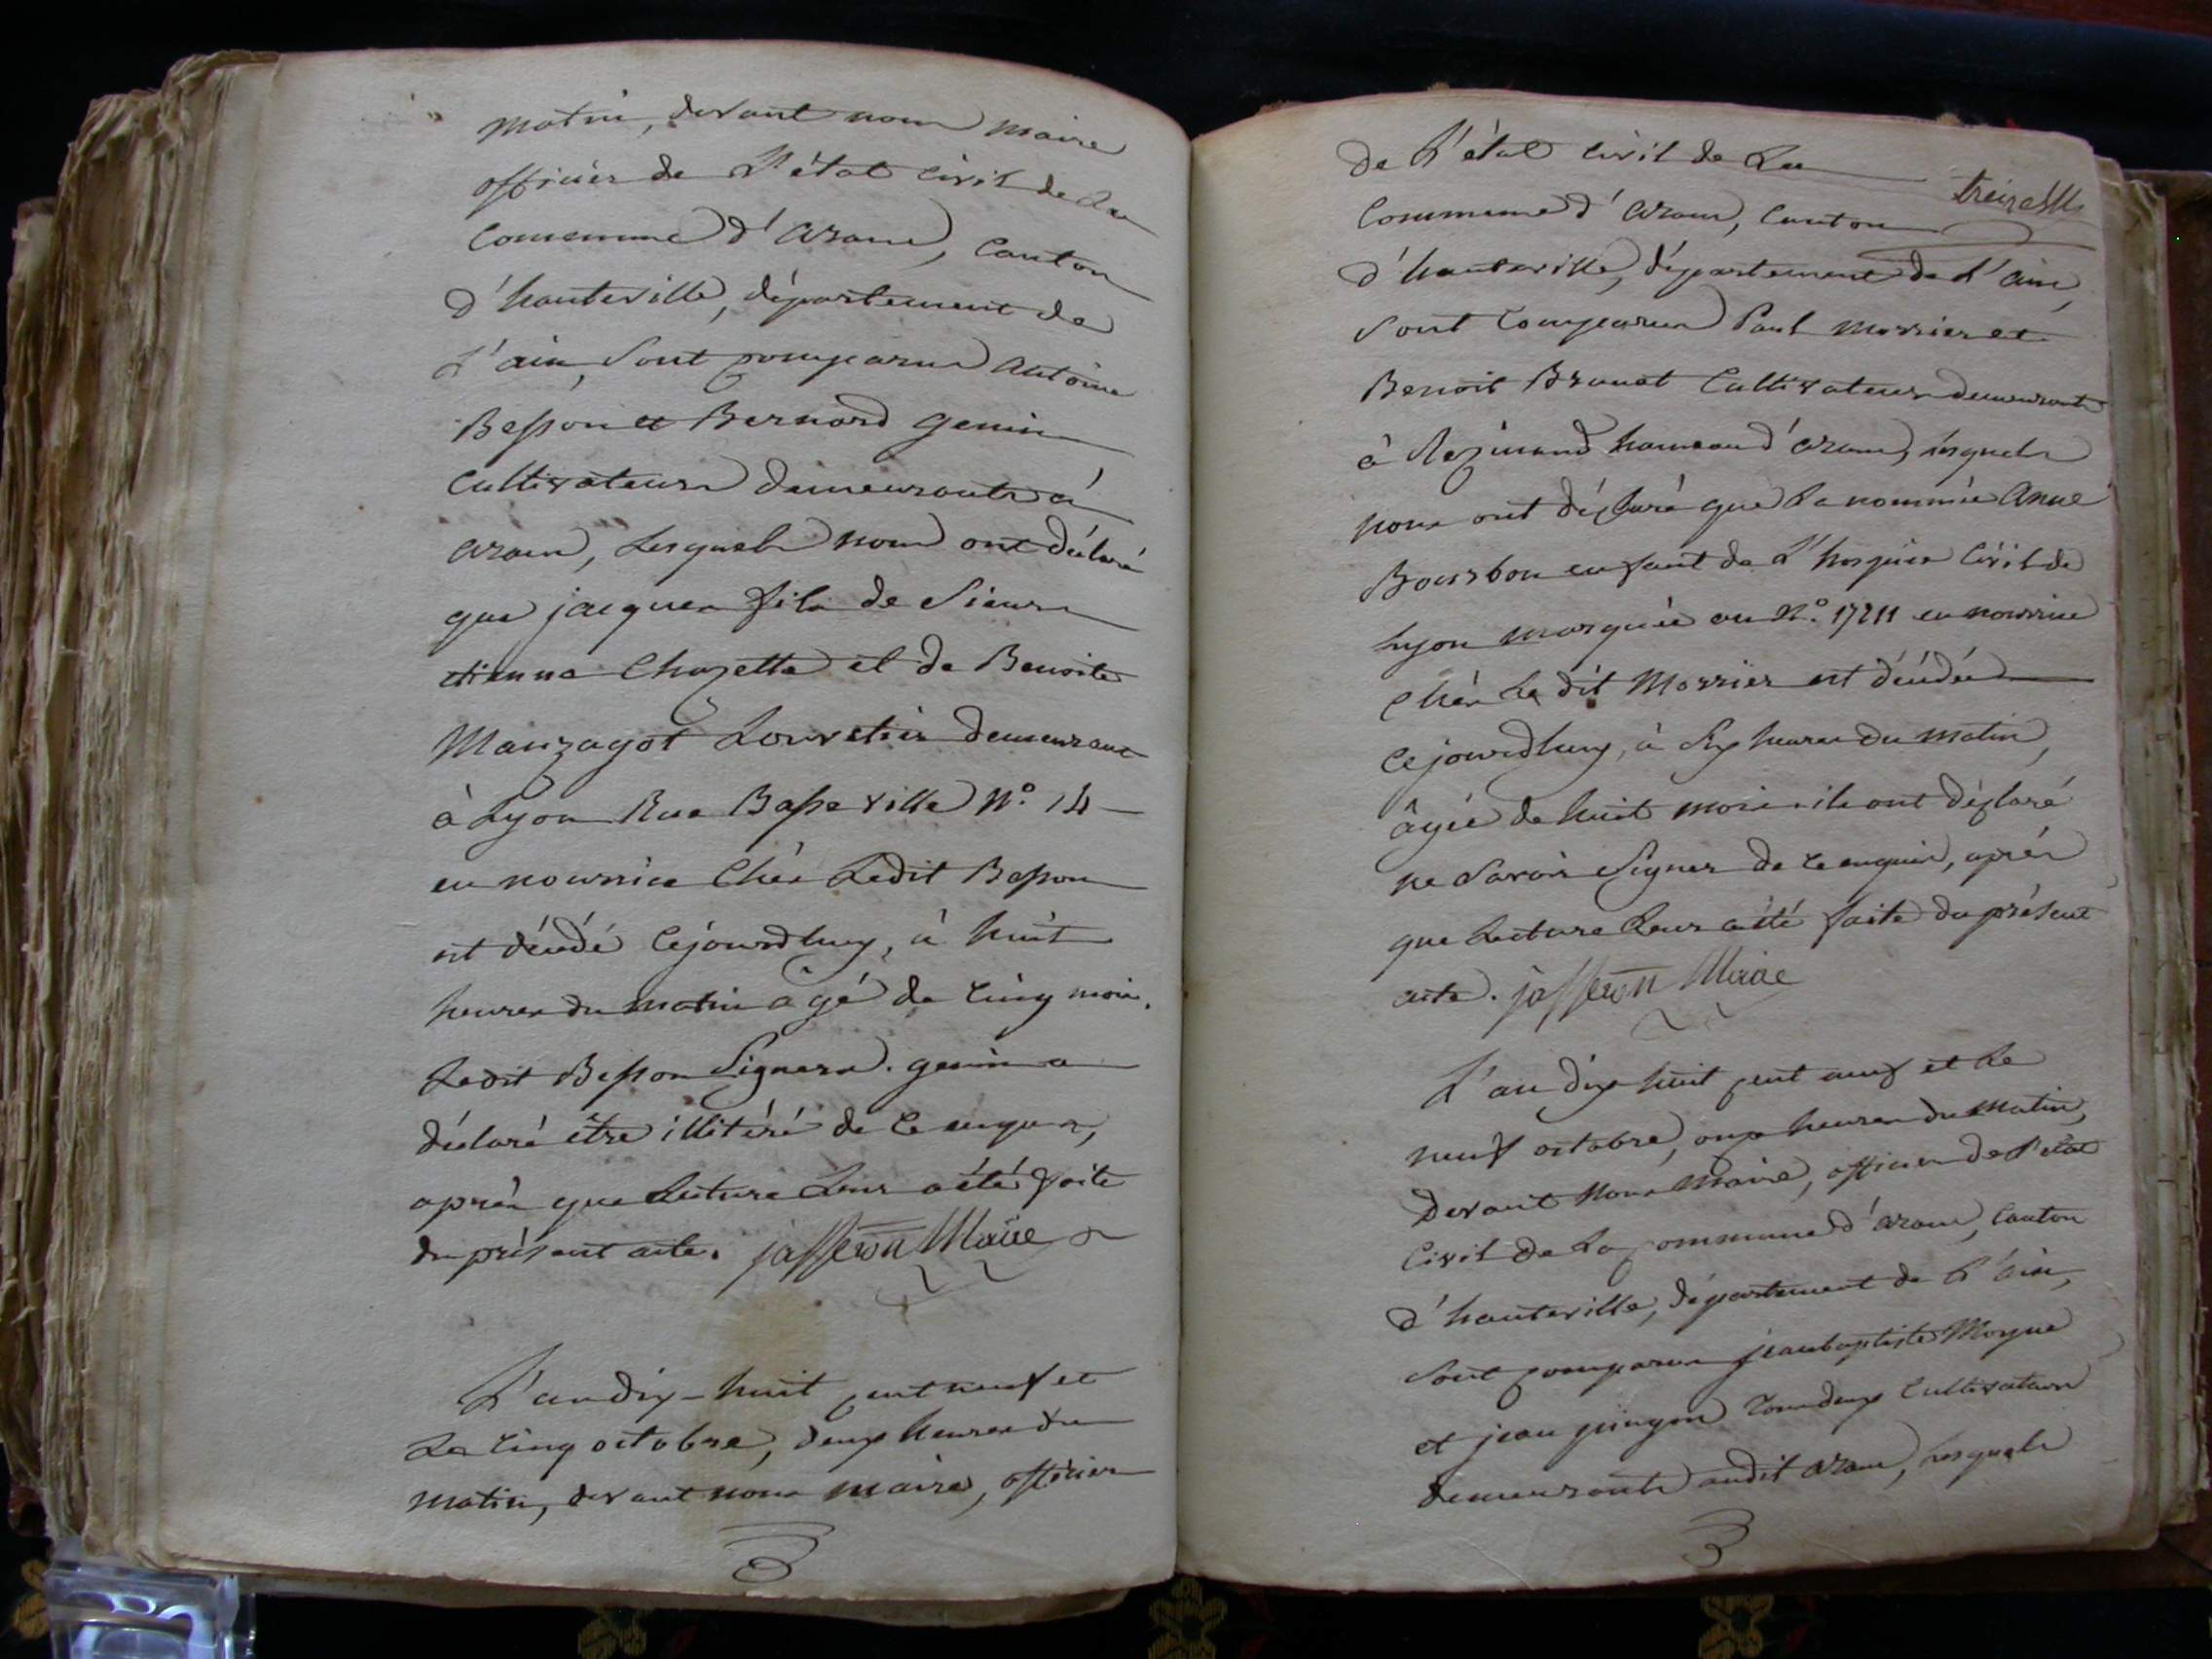 matin, devant nous maire
officier de l'état civil de la
Commune d'aranc, Canton
d'hauteville, département de
l'ain, sont comparus antoine
Besson et Bernard genin
Cultivateurs demeurants à
aranc, lesquels nous ont déclaré
que jacques fils de Sieur
etienne Chazette et de Benoite
Manzagot demeurant
à Lyon Rue Basseville N.° 14
en nourrice Chés Ledit Besson
est décédé cejourdhuy, à huit
heures du matin agé de cinq mois.
Ledit Besson Signera. genin a
déclaré être illitéré de ce enquis,
après que lecture leur a été faite
du présent acte. jasseron Maire
L'an dix-huit cent neuf et
Le cinq octobre, deux heures du
matin, devant nous maire, officier
treize
de l'état civil de La
Commune d'aranc, Canton
d'hauteville, département de l'ain,
sont comparus Paul morrier et
Benoit Brunet Cultivateurs demeurants
à Rezinand hameau d'aranc, lesquels
nous ont déclaré que la nommée Anne
Bourbon enfant de l'hospice Civil de
Lyon marquée au N.° 17211 en nourrice
Chés Le dit Morrier est décédée
cejourdhuy, à six heures du matin,
âgée de huit mois. ils ont déclaré
ne savoir signer de ce enquis, après
que lecture leur a été faite du présent
acte. jasseron Maire
L'an dix huit cent neuf et le
neuf octobre, onze heures du matin,
devant nous maire, officier de l'état
Civil de la commune d'aranc, Canton
d'hauteville, département de l'ain,
sont comparus jean baptiste Moyne
et jean pingon tous deux Cultivateurs
demeurants audit aranc, lesquels